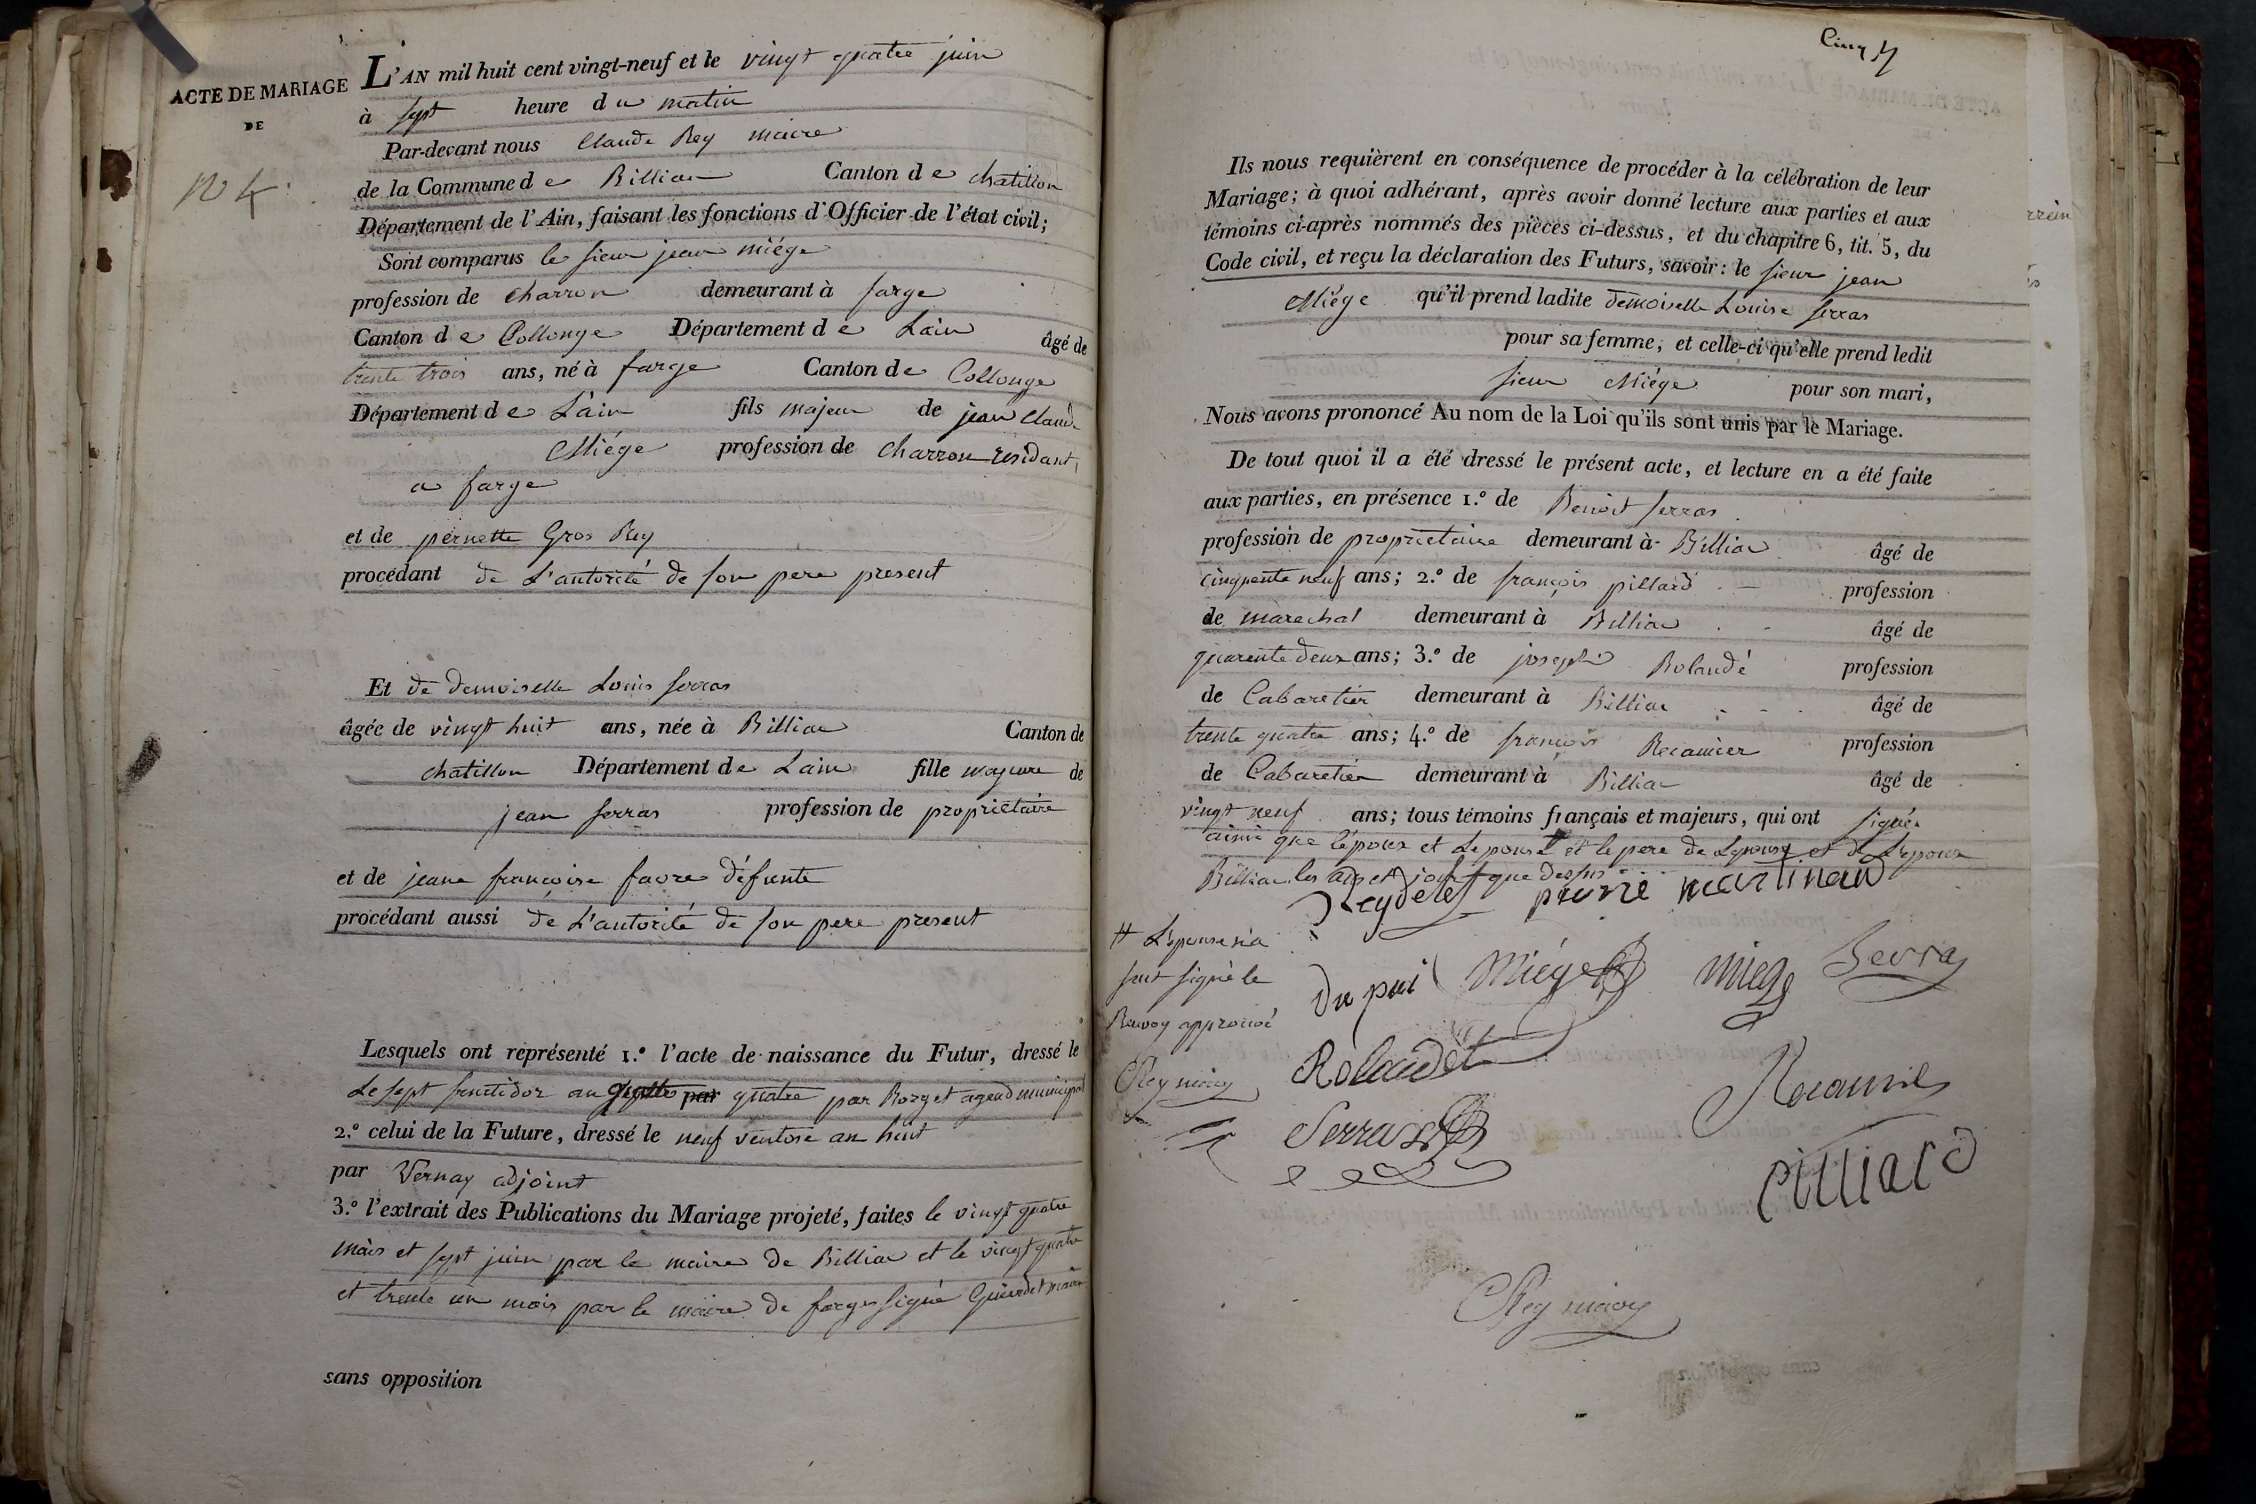 ACTE DE MARIAGE
DE
N 4.
L'AN mil huit cent vingt-neuf et le vingt quatre juin
à sept heure du matin
Par-devant nous Claude Rey maire
de la Commune de Billiat Canton de chatillon
Département de l'Ain, faisant les fonctions d'Officier de l'état civil;
Sont comparus le sieur jean miége
profession de charron demeurant à farge
Canton de Collonge Département de Lain âgé de
trente trois ans, né à farge Canton de Collonge
Département de L'ain fils majeur de jean Claude
Miége profession de charron residant
a farge
et de pernette Gros Rey
procédant de L'autorité de son pere present
Et de demoiselle Louis serras
âgée de vingt huit ans, née à Billiat Canton de
chatillon Département de Lain fille majeure de
jean serras profession de propriétaire
et de jeane françoise favre défunte
procédant aussi de L'autorité de son pere present
Lesquels ont représenté 1.º l'acte de naissance du Futur, dressé le
Le sept fructidor an par quatre par Borget agend municipal
2.º celui de la Future, dressé le neuf ventose an huit
par Vernay adjoint
3.º l'extrait des Publications du Mariage projeté, faites le vingt quatre
mais et sept juin par le maire de Billiat et le vingt quatre
et trente un mais par le maire de farges signé maire
sans opposition
Cinq 5
Ils nous requièrent en conséquence de procéder à la célébration de leur
Mariage; à quoi adhérant, après avoir donné lecture aux parties et aux
témoins ci-après nommés des pièces ci-dessus, et du chapitre 6, tit. 5, du
Code civil, et reçu la déclaration des Futurs, savoir: le sieur jean
Miége qu'il prend ladite demoiselle Louise serras
pour sa femme, et celle-ci qu'elle prend ledit
sieur Miége pour son mari,
Nous avons prononcé Au nom de la Loi qu'ils sont unis par le Mariage.
De tout quoi il a été dressé le présent acte, et lecture en a été faite
aux parties, en présence 1.º de Benoit serras
profession de proprietaire demeurant à Billiat âgé de
cinquente neuf ans; 2.º de françois pillard profession
de marechal demeurant à Billiat âgé de
quarente deux ans; 3.º de joseph Rolandé profession
de Cabaretier demeurant à Billiat âgé de
trente quatre ans; 4.º de françois Recamier profession
de Cabaretier demeurant à Billiat âgé de
vingt neuf ans; tous témoins français et majeurs, qui ont signés
ainsi que l'époux et Lepouse et le pere de Lepouse et de L'epoux
Billiat les ans et jour que dessus
pierre martinand
# L'epouse n'a
seut signé le
Renvoy approuvé
CRey maire
Du pui Miége miege Serras
Rolandet
Recamier
Serras
Pilliard
CRey maire